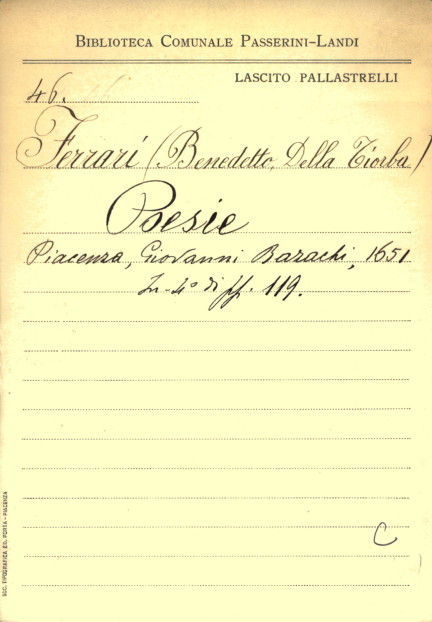 BIBLIOTECA COMUNALE PASSERINI-LANDI
LASCITO PALLASTRELLI
46.
Ferrari (Benedetto, Della Tiorba)
Poesie
Piacenza, Giovanni Bazachi, 1651
In-4º di ff. 119.
C
SOC. TIPOGRAFICA ED. PORTA - PIACENZA